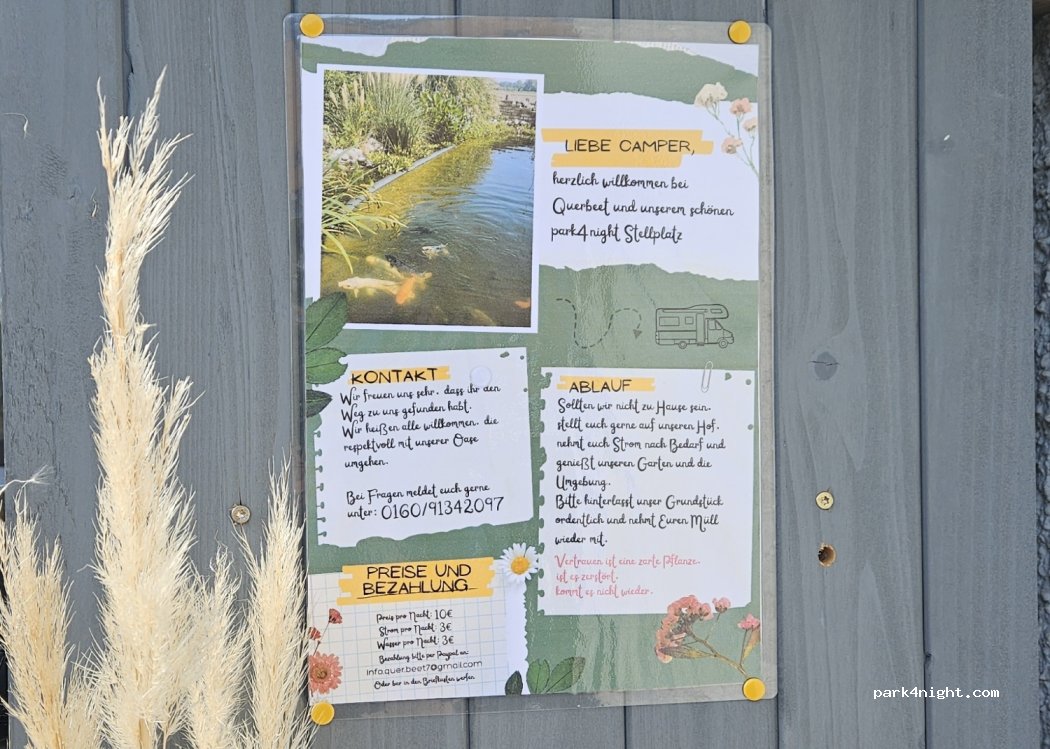 LIEBE CAMPER,
herzlich willkommen bei
Querbeet und unserem schönen
park4night Stellplatz
KONTAKT
Wir freuen uns sehr, dass ihr den
Weg zu uns gefunden habt.
Wir heißen alle willkommen, die
respektvoll mit unserer Oase
umgehen.
Bei Fragen meldet euch gerne
unter: 0160/91342097
ABLAUF
Sollten wir nicht zu Hause sein,
stellt euch gerne auf unseren Hof,
nehmt euch Strom nach Bedarf und
genießt unseren Garten und die
Umgebung.
Bitte hinterlasst unser Grundstück
ordentlich und nehmt Euren Müll
wieder mit.
Vertrauen ist eine zarte Pflanze,
ist es zerstört,
kommt es nicht wieder.
PREISE UND
BEZAHLUNG
Preis pro Nacht: 10€
Strom pro Nacht: 3€
Wasser pro Nacht: 3€
Bezahlung bitte per Paypal an:
info.quer.beet7@gmail.com
Oder bar in den Briefkasten werfen
park4night.com